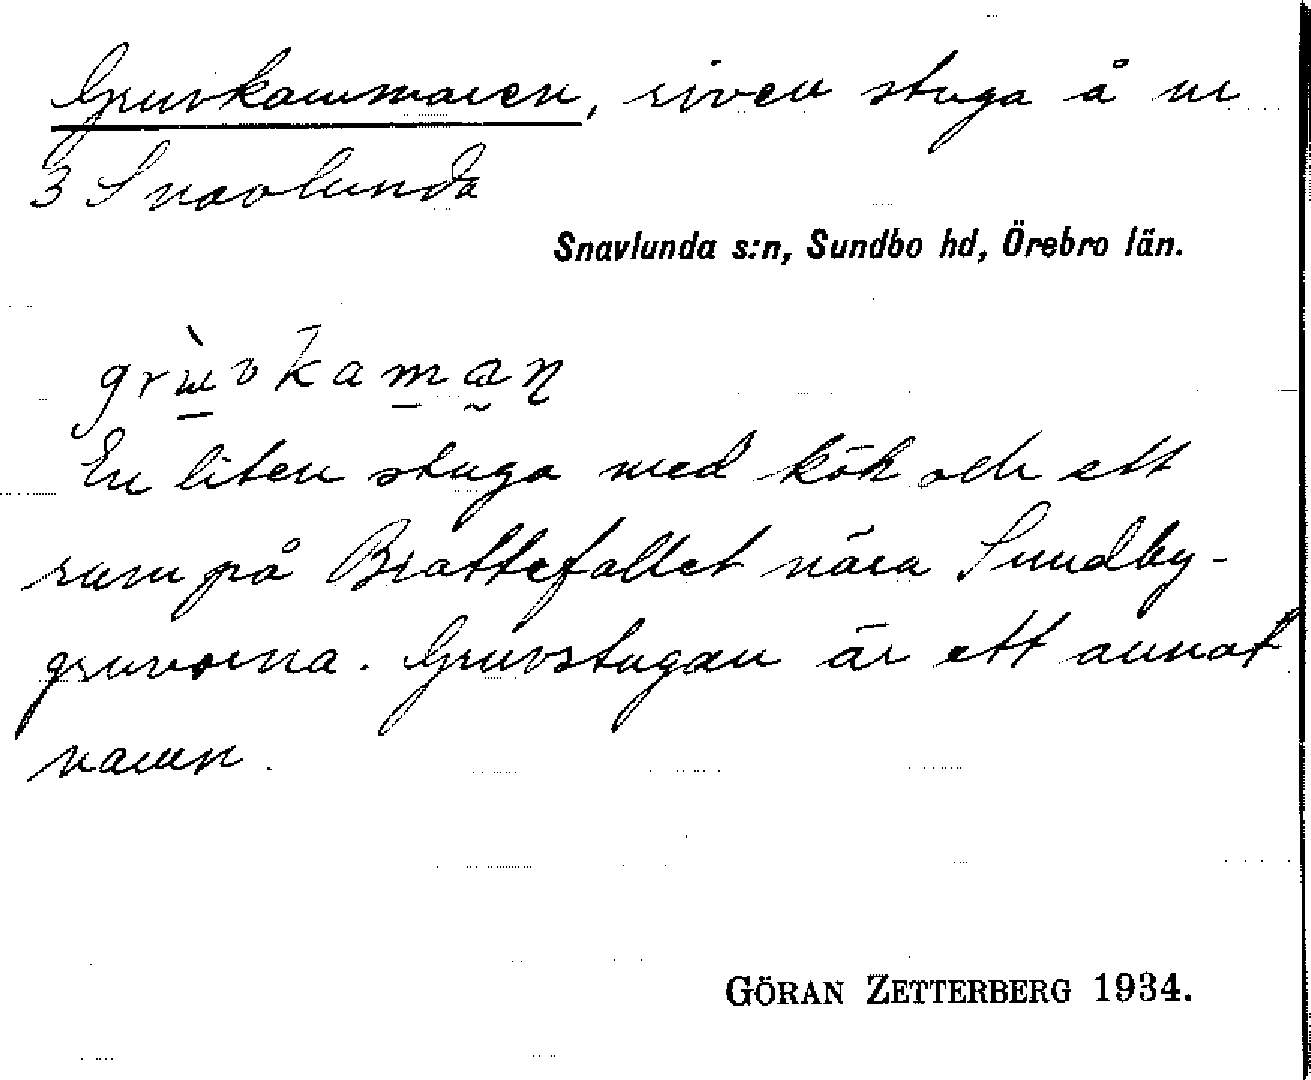 Gruvkammaren, riven stuga å nr
3 Snavlunda
Snavlunda s:n, Sundbo hd, Örebro län.
grùvkaman
En liten stuga med kök och ett
rum på Brattefallet nära Sundby-
gruvorna. Gruvstugan är ett annat
namn.
GÖRAN ZETTERBERG 1934.